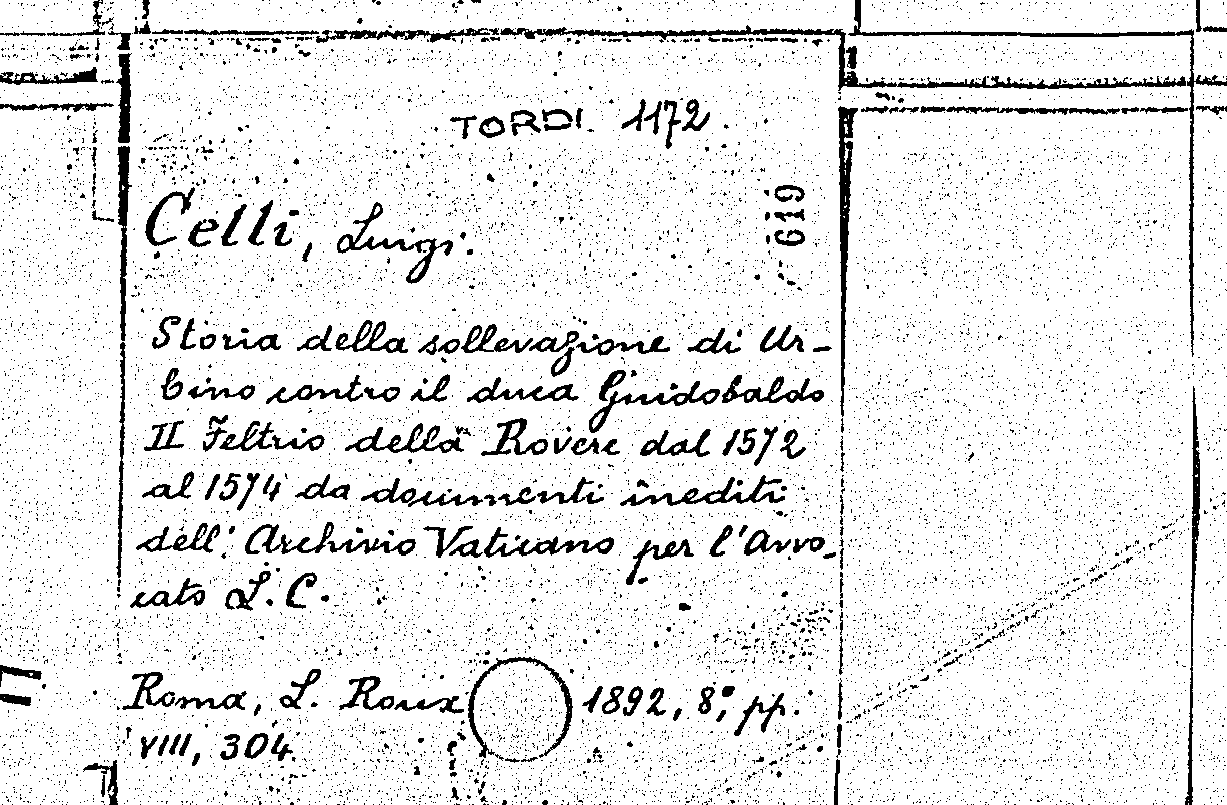 TORDI 1172.
619
Celli, Luigi.
Storia della sollevazione di Ur-
bino contro il duca Guidobaldo
II Feltrio della Rovere dal 1572
al 1574 da documenti inediti
dell'Archivio Vaticano per l'Avvo-
cato L. C.
Roma, L. Roux 1892, 8°, pp.
VIII, 304.